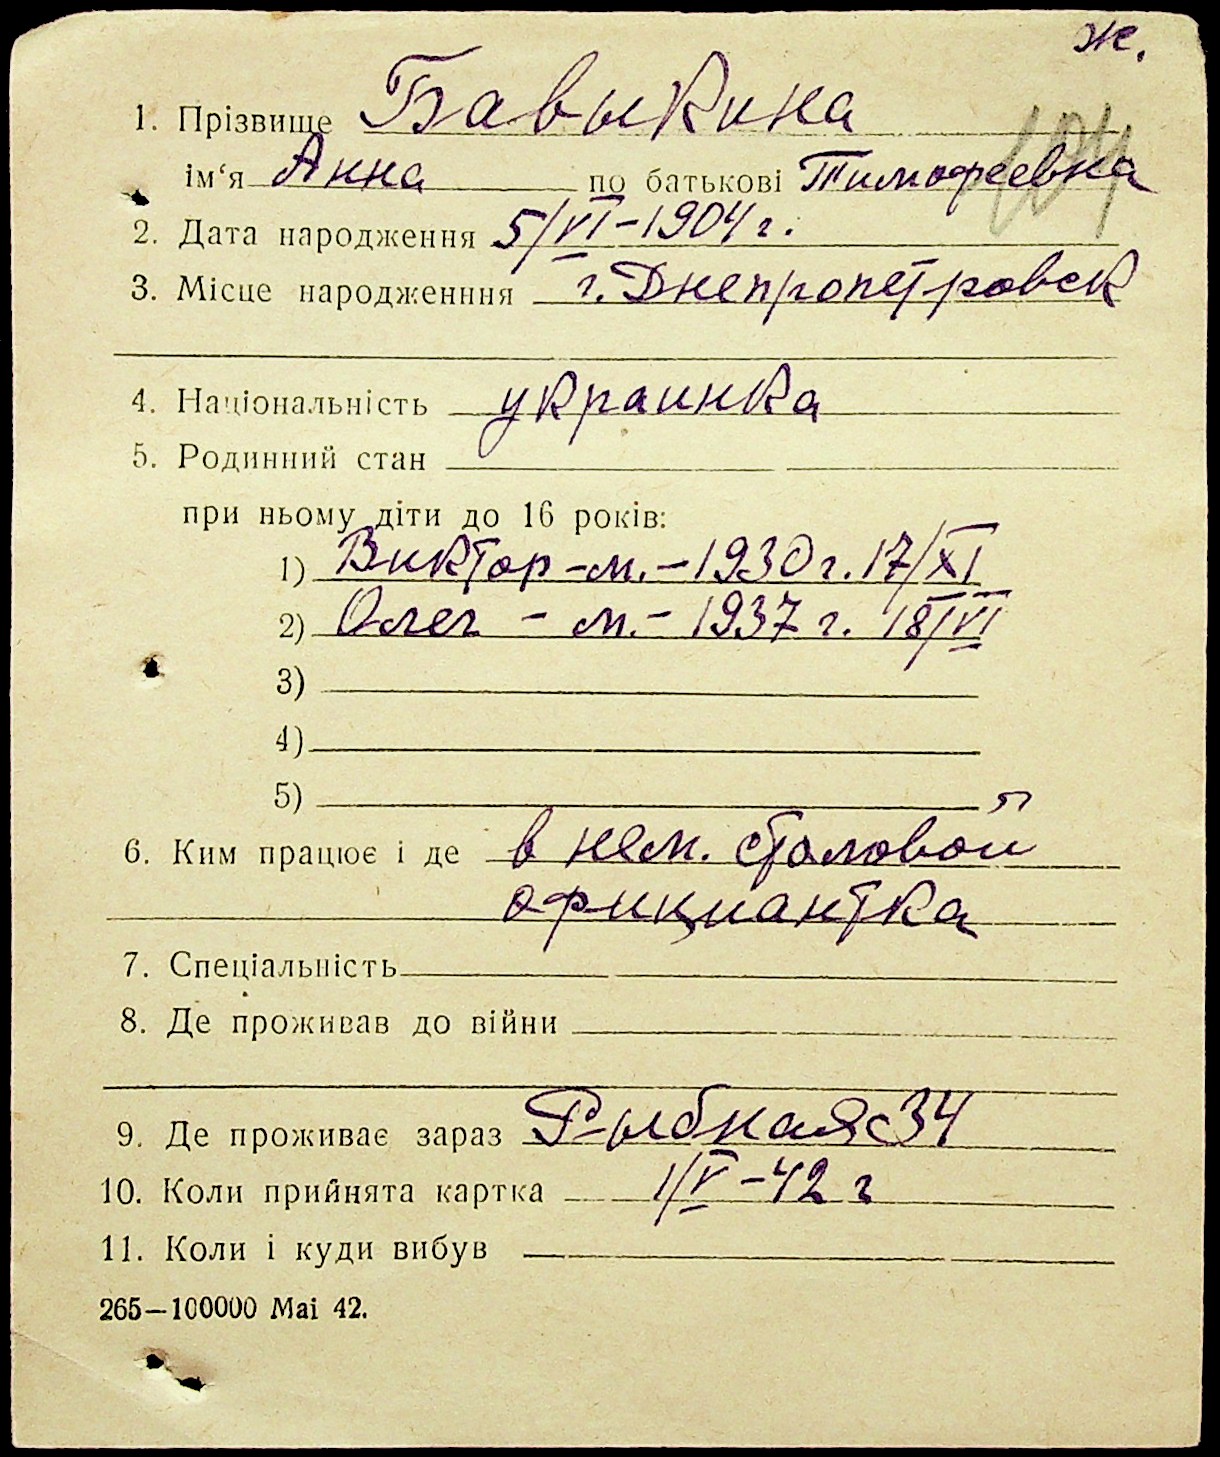 ж.
1. Прізвище Бавыкина
ім‘я Анна по батькові Тимофеевна
2. Дата народження 5/VI-1904 г.
3. Місце народженння г. Днепропетровск
4. Національність украинка
5. Родинний стан
при ньому діти до 16 років:
1) Виктор - м. - 1930 г. 17/XI
2) Олег - м. - 1937 г. 18/VI
3)
4)
5)
6. Ким працює і де в нем. столовой
официантка
7. Спеціальність
8. Де проживав до війни
9. Де проживає зараз Рыбная 34
10. Коли прийнята картка 1/V-42 г
11. Коли і куди вибув
265—100000 Mai 42.